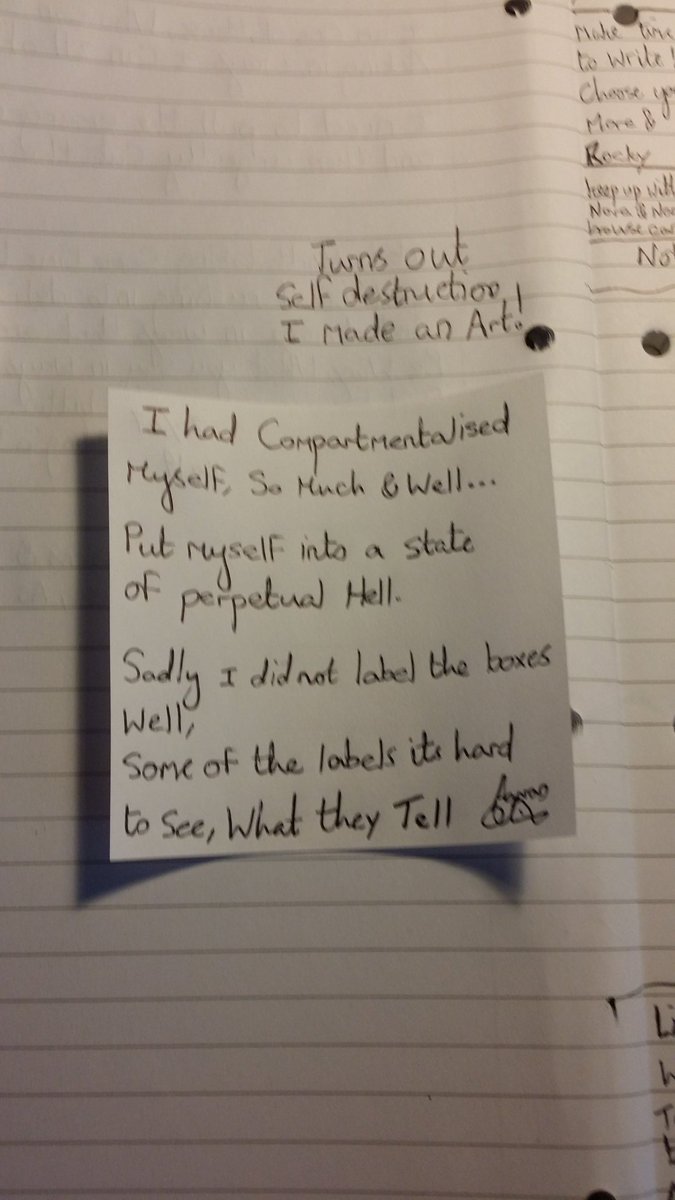 Turns out
Self destruction,
I made an Art!
I had Compartmentalised
Myself, So Much & Well...
Put myself into a state
of perpetual Hell.
Sadly I did not label the boxes
Well,
Some of the labels its hard
to See, What they Tell
Make time
to Write!
Choose yo
More &
Rocky
keep up with
Nova & Noa
browse
No
Li
W
T